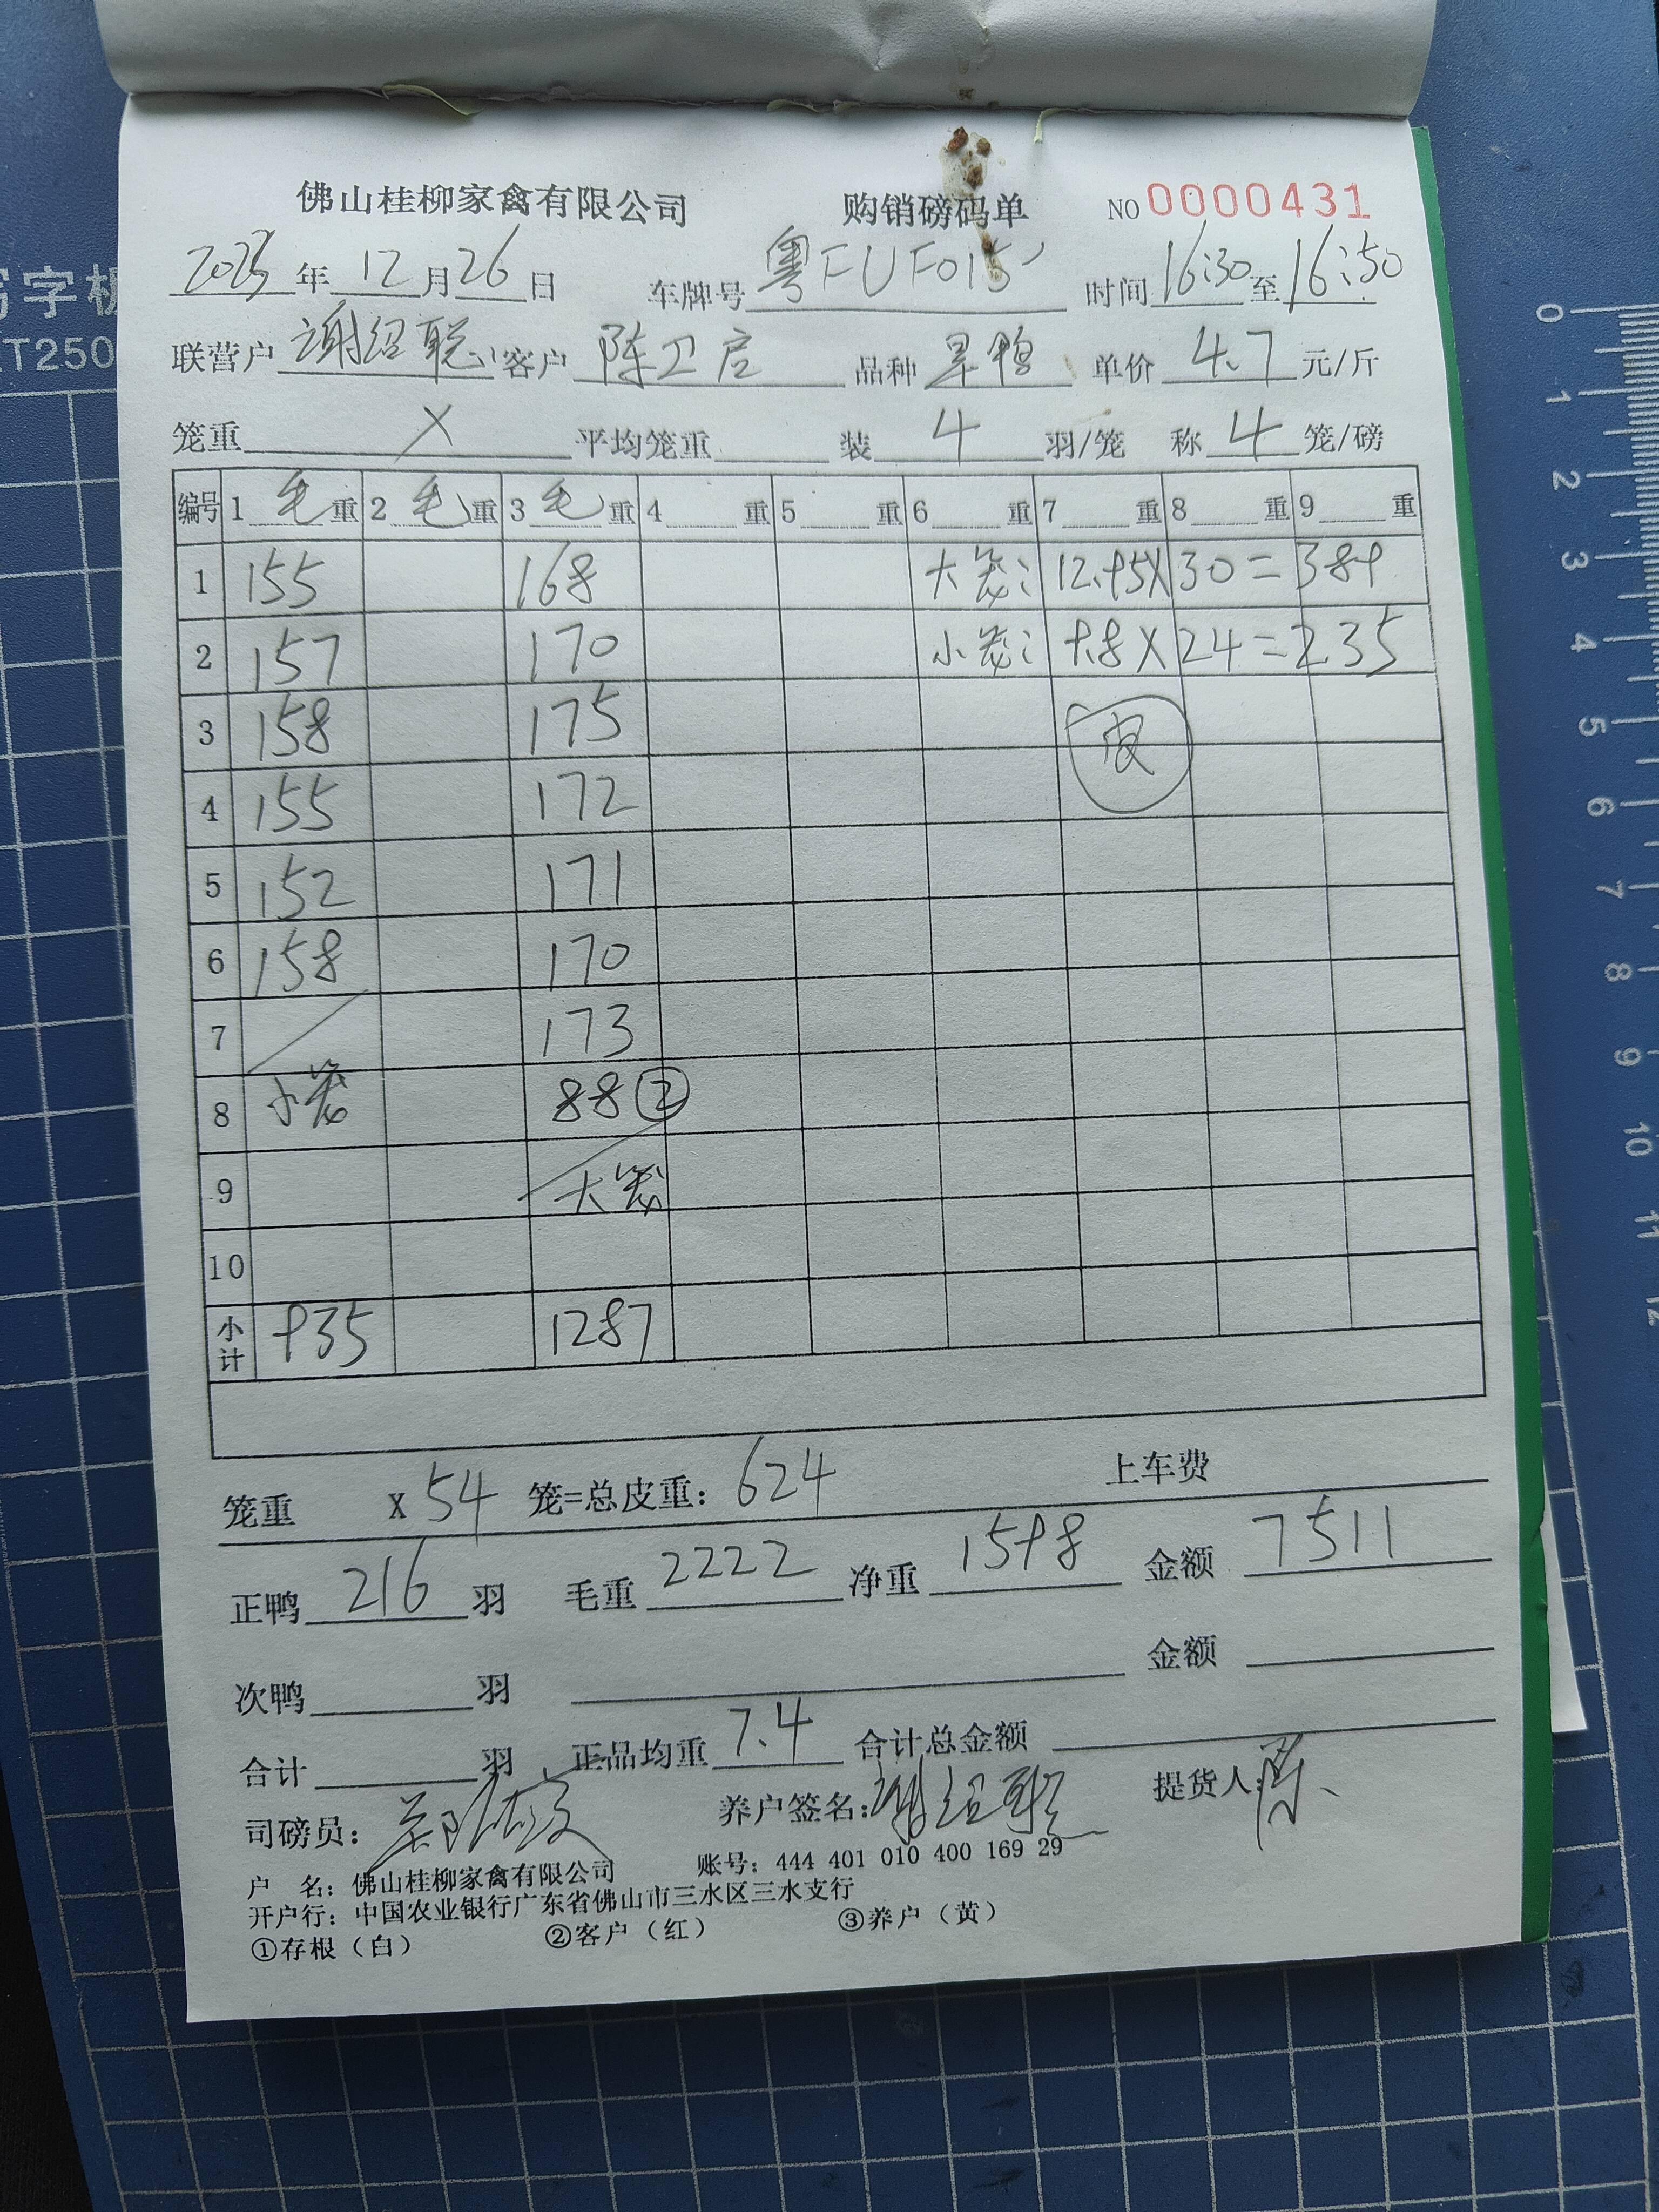 佛山桂柳家禽有限公司 购销磅码单 NO 0000431
2025 年 12 月 26 日 车牌号 粤FUF015 时间 16:30 至 16:50
联营户 谢绍聪 客户 陈卫启 品种 旱鸭 单价 4.7 元/斤
笼重 X 平均笼重 装 4 羽/笼 称 4 笼/磅
编号 1 毛 重 2 毛 重 3 毛 重 4 重 5 重 6 重 7 重 8 重 9 重
1 155 168 大笼: 12.95X30=389
2 157 170 小笼: 9.8X24=235
3 158 175 皮
4 155 172
5 152 171
6 158 170
7 173
8 小笼 88②
9 大笼
10
小计 935 1287
笼重 X 54 笼=总皮重: 624 上车费
正鸭 216 羽 毛重 2222 净重 1598 金额 7511
次鸭 羽 金额
合计 羽 正品均重 7.4 合计总金额
司磅员: 养户签名: 谢绍聪 提货人: 陈
户 名: 佛山桂柳家禽有限公司 账号: 444 401 010 400 169 29
开户行: 中国农业银行广东省佛山市三水区三水支行
①存根(白) ②客户(红) ③养户(黄)
写字板
T250
0
1
2
3
4
5
6
7
8
9
10
11
12